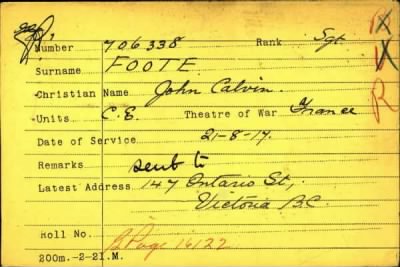 Number 706338 Rank Sgt. IX
Surname FOOTE. X
Christian Name John Calvin. R
Units C.E. Theatre of War France
Date of Service 21-8-17.
Remarks sent to
Latest Address 147 Ontario St,
Victoria B.C.
Roll No. B Page 16122
200m.-2-21.M.